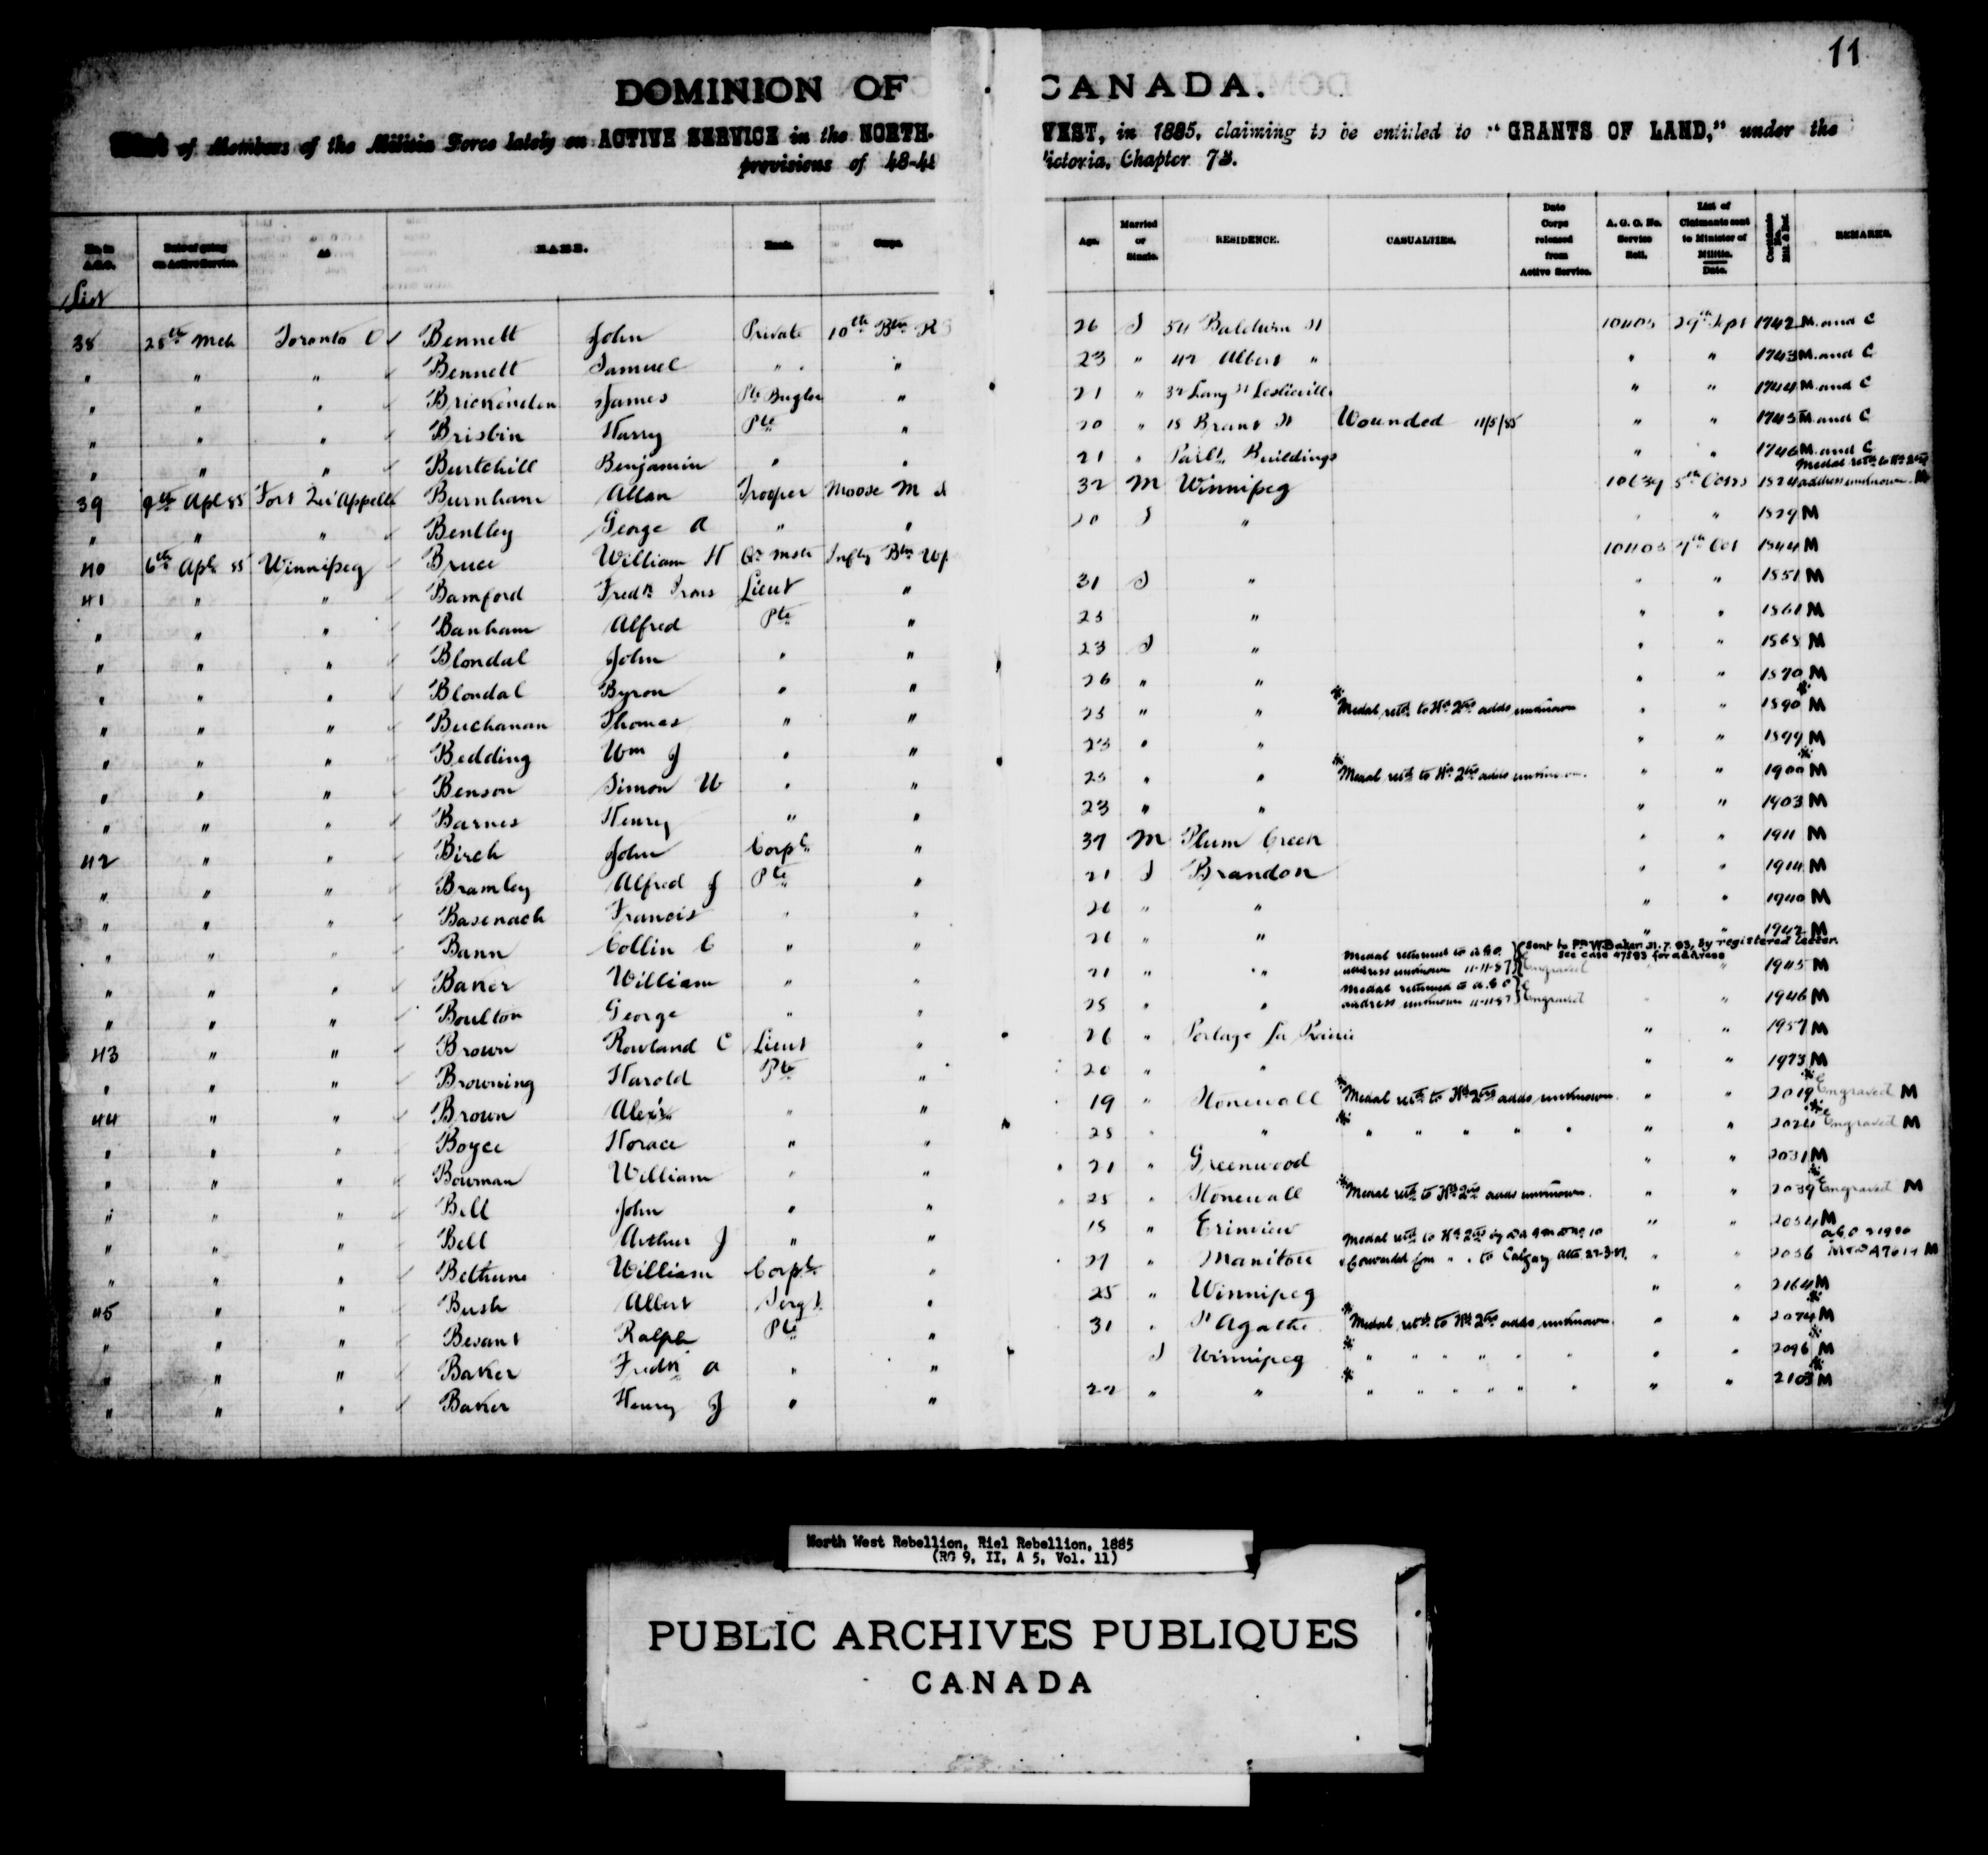 11
DOMINION OF CANADA.
List of Members of the Militia Force lately on ACTIVE SERVICE in the NORTH- WEST, in 1885, claiming to be entitled to "GRANTS OF LAND," under the
provisions of 48-49 Victoria, Chapter 73.
No. in A.G.O. List | Date of going on Active Service. | At | NAME. | Rank. | Corps. | Age. | Married or Single. | RESIDENCE. | CASUALTIES. | Date Corps released from Active Service. | A. G. O. No. Service Roll. | List of Claimants sent to Minister of Militia. Date. | Certificate No. | REMARKS.
38 28th Mch Toronto O Bennett John Private 10th Btn R 26 S 54 Baldwin St 10405 29th Sept 1742 M. and C
" " " Bennett Samuel " " 23 " 42 Albert " " " 1743 M. and C
" " " Brickenden James Pte Bugler " 21 " Long St Leslieville " " 1744 M. and C
" " " Brisbin Harry Pte " 20 " 18 Brant St Wounded 11/5/85 " " 1745 M. and C
" " " Burtchill Benjamin " " 21 " Parlt. Buildings " " 1746 M. and C
39 9th Apl 85 Fort Qu'Appelle Burnham Allan Trooper Moose M 32 M Winnipeg 5th 1824 Medal retd to Hd 2trs address unknown M
" " " Bentley George A " " 20 S " " " 1829 M
40 6th Apl 85 Winnipeg Bruce William H Qr Mstr Infty Btn Wp 10403 7th Oct 1844 M
41 " " Bamford Fredk Lieut " 31 S " " " 1851 M
" " " Banham Alfred Pte " 25 " " " 1861 M
" " " Blondal John " " 23 S " " " 1868 M
" " " Blondal Byron " " 26 " " " " 1870 M
" " " Buchanan Thomas " " 25 " " * Medal retd to Hd 2trs adds unknown " " 1890 * M
" " " Bedding Wm J " " 23 " " " " 1899 M
" " " Benson Simon W " " 25 " " * Medal retd to Hd 2trs adds unknown. " " 1900 * M
" " " Barnes Henry " " 23 " " " " 1903 M
42 " " Birch John Corpl " 37 M Plum Creek " " 1911 M
" " " Bramley Alfred J Pte " 21 S Brandon " " 1914 M
" " " Basenach Francis " " 26 " " " " 1940 M
" " " Bann Collin C " " 26 " " " " 1942 M
" " " Baker William " " 21 " " Medal returned to A.G.O. address unknown 11-11-87 Engraved Sent to Pte W. Baker 21.7.93, by registered letter. See case 47593 for address " 1945 M
" " " Boulton George " " 25 " " Medal returned to A.G.O address unknown 11-11-87 Engraved " " 1946 M
43 " " Brown Rowland C Lieut " 26 " Portage La Prairie " " 1957 M
" " " Browning Harold Pte " 20 " " " " 1973 M
44 " " Brown Alexr " " 19 " Stonewall * Medal retd to Hd 2trs adds unknown. " " 2019 * Engraved M
" " " Boyce Horace " " 28 " " * " " " " " " " 2024 * Engraved M
" " " Bowman William " " 21 " Greenwood " " 2031 M
" " " Bell John " " 25 " Stonewall * Medal retd to Hd 2trs adds unknown. " " 2039 * Engraved M
" " " Bell Arthur J " " 18 " Erinview " " 2054 M
" " " Bethune William Corpl " 27 " Manitou Medal retd to Hd 2trs by D.A.G. M.D. No 10 & forwarded from " " to Calgary " " 2056 M
45 " " Bush Albert Sergt " 25 " Winnipeg " " 2164 M
" " " Besant Ralph Pte " 31 " St Agathe * Medal retd to Hd 2trs adds unknown. " " 2074 * M
" " " Baker Fredk A " " S Winnipeg * " " " " " " " " 2096 * M
" " " Baker Henry J " " 22 " " * " " " " " " " " 2103 * M
North West Rebellion, Riel Rebellion, 1885
(RG 9, II, A 5, Vol. 11)
PUBLIC ARCHIVES PUBLIQUES
CANADA